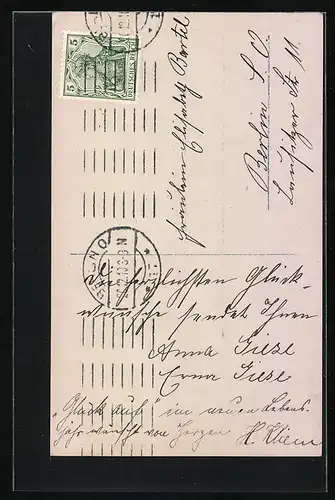 5
5
DEUTSCHES REICH
Fräulein Elisabeth Bartel
Berlin S O
Lausitzer Str 11
Die herzlichsten Glück-
wünsche sendet Ihnen
Anna Giese
Erna Giese
„Glück auf" im neuen Lebens-
jahr wünscht von Herzen
H. Kliem
10 3-9 N